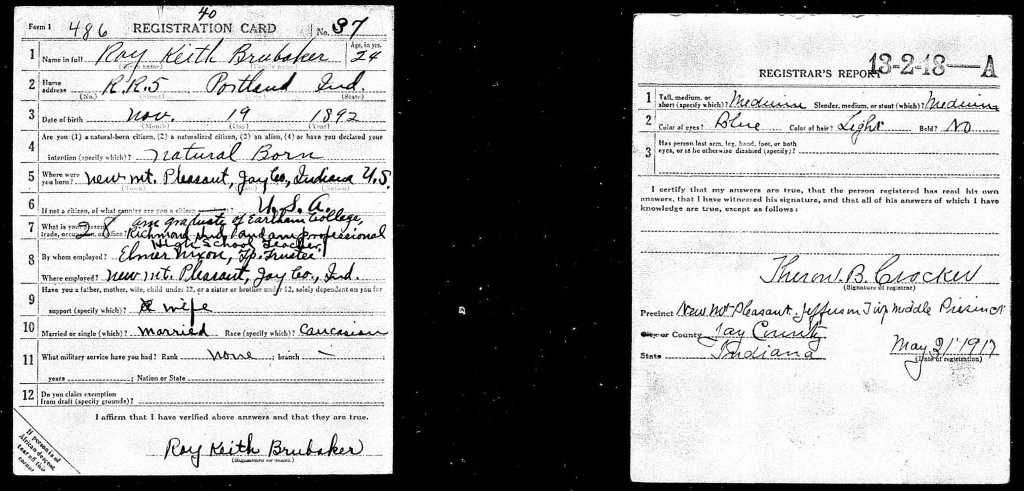 40
Form 1 486 REGISTRATION CARD No. 37
1 Name in full Roy Keith Brubaker Age, in yrs. 24
2 Home address R.R.5 Portland Ind.
(No.) (Street) (City) (State)
3 Date of birth Nov. 19 1892
(Month) (Day) (Year)
4 Are you (1) a natural-born citizen, (2) a naturalized citizen, (3) an alien, (4) or have you declared your
intention (specify which)? Natural Born
5 Where were you born? New Mt. Pleasant, Jay Co., Indiana U.S.
(Town) (State) (Nation)
6 If not a citizen, of what country are you a citizen U.S.A.
am graduate of Earlham College,
7 What is your present trade, occupation, or office? 28 Richmond Ind. and am professional
High School Teacher
8 By whom employed? Elmer Nixon, Tp. Trustee
Where employed? New Mt. Pleasant, Jay Co., Ind.
9 Have you a father, mother, wife, child under 12, or a sister or brother under 12, solely dependent on you for
support (specify which)? wife
10 Married or single (which)? Married Race (specify which)? Caucasian
11 What military service have you had? Rank none ; branch —
years ; Nation or State
12 Do you claim exemption from draft (specify grounds)?
I affirm that I have verified above answers and that they are true.
Roy Keith Brubaker
(Signature or mark)
If person is of African descent, tear off this corner
13-2-18—A
REGISTRAR'S REPORT
1 Tall, medium, or short (specify which)? Medium Slender, medium, or stout (which)? Medium
2 Color of eyes? Blue Color of hair? Light Bald? No
3 Has person lost arm, leg, hand, foot, or both eyes, or is he otherwise disabled (specify)?
I certify that my answers are true, that the person registered has read his own
answers, that I have witnessed his signature, and that all of his answers of which I
have knowledge are true, except as follows:
Theron B. Crocker
(Signature of registrar)
Precinct New Mt Pleasant Jefferson Twp Middle Precinct
City or County Jay County
State Indiana May 31 1917
(Date of registration)